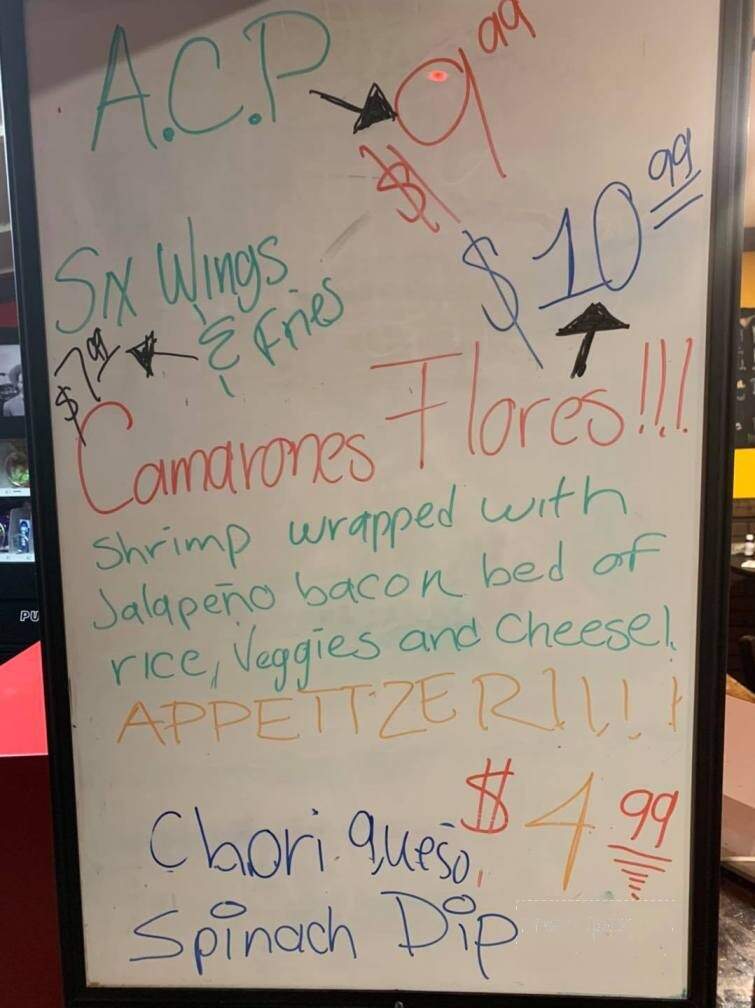 A.C.P
$9.99
$10.99
Six Wings
& Fries
$7.99
Camarones Flores!!!
Shrimp wrapped with
Jalapeño bacon bed of
rice, Veggies and cheese!.
APPETTZER!!!!
$4.99
Chori queso,
Spinach Dip
PU